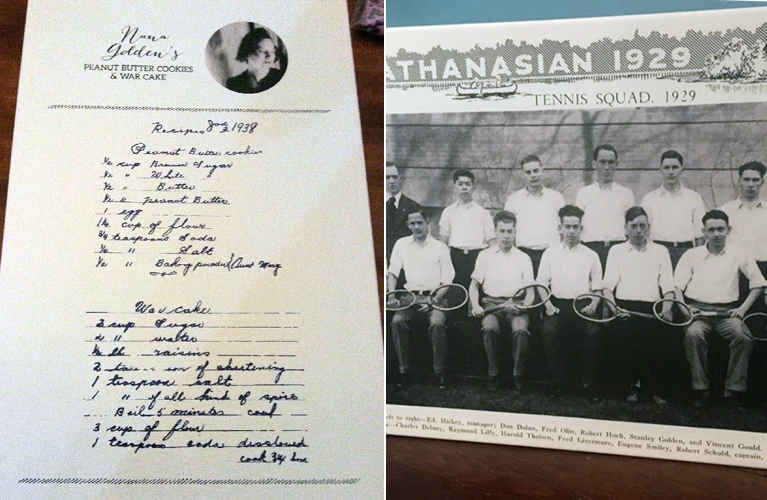 Nana
Golden's
PEANUT BUTTER COOKIES
& WAR CAKE
Recipes Jan 2 1938
Peanut Butter cookies
1/2 cup Brown Sugar
1/2 " White "
1/2 " Butter
1/2 " peanut Butter
1 egg
1 1/4 cup of flour
3/4 teaspoons Soda
1/2 " Salt
1/2 " Baking powder Aunt Marg
War cake
2 cup Sugar
2 " water
1/2 lb raisins
2 of shortening
1 teaspoon salt
1 " of all kind of spice
Boil 5 minutes cool
3 cup of flour
1 teaspoon soda dissolved
cook 3/4 hr
ATHANASIAN 1929
TENNIS SQUAD, 1929
left to right—Ed. Hickey, manager; Don Dolan, Fred Olin, Robert Hoch, Stanley Golden, and Vincent Gould.
—Charles Delaney, Raymond Lilly, Harold Theisen, Fred Livermore, Eugene Smiley, Robert Schuld, captain,